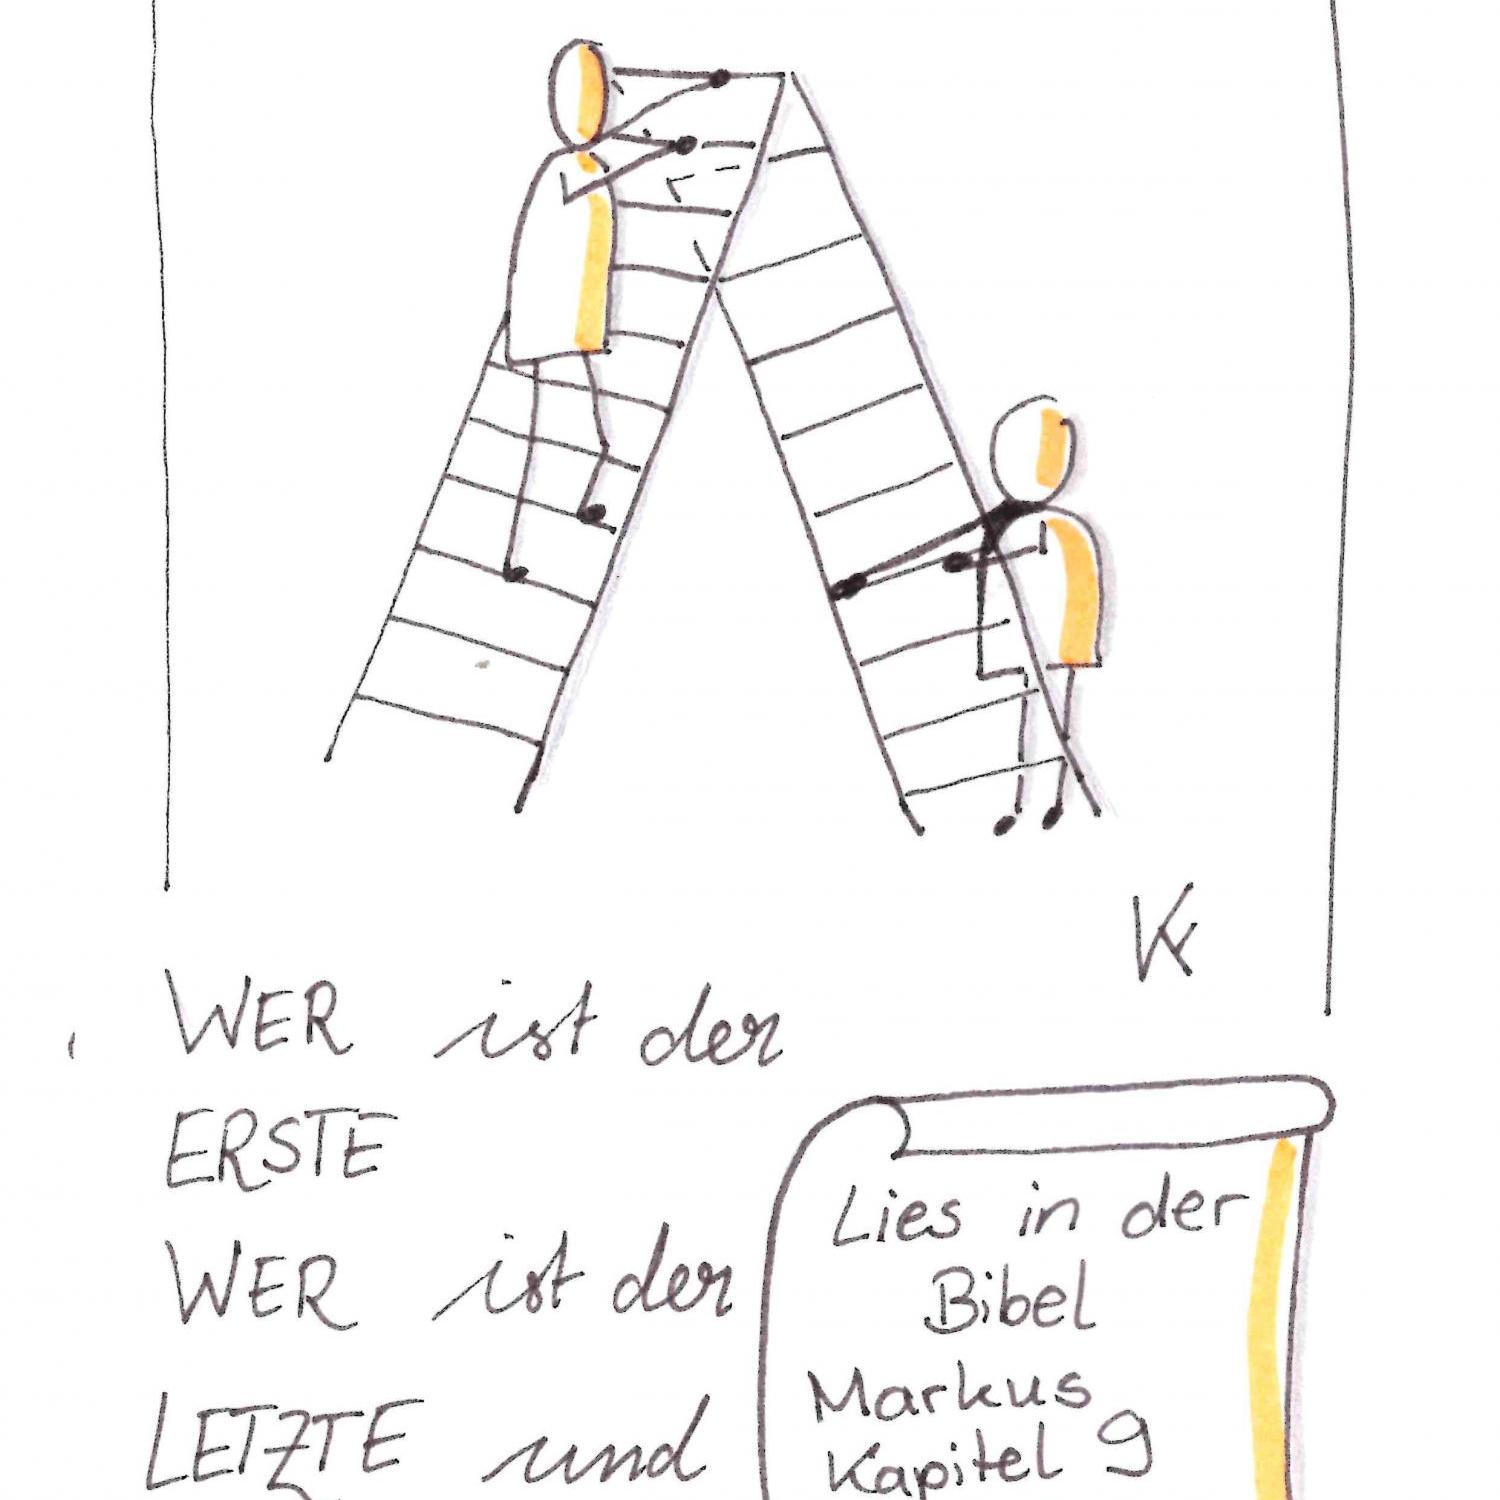 WER ist der
ERSTE
WER ist der
LETZTE und
Lies in der
Bibel
Markus
Kapitel 9